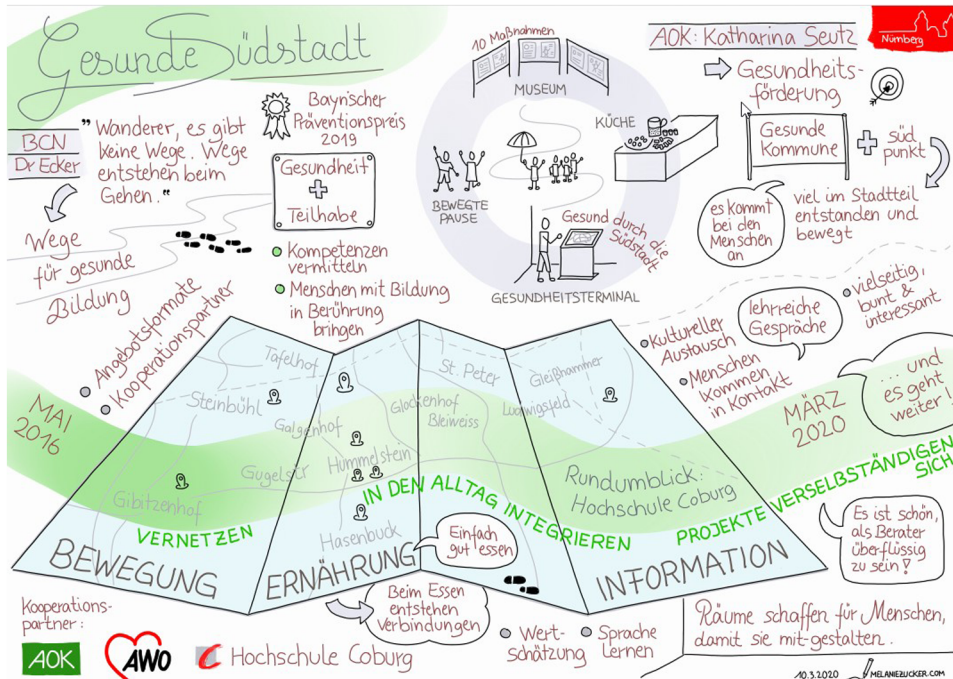 Gesunde Südstadt
BCN
Dr Ecker
"Wanderer, es gibt
keine Wege. Wege
entstehen beim
Gehen."
Wege
für gesunde
Bildung
Bayrischer
Präventionspreis
2019
Gesundheit
+
Teilhabe
Kompetenzen
vermitteln
Menschen mit Bildung
in Berührung
bringen
10 Maßnahmen
MUSEUM
KÜCHE
BEWEGTE
PAUSE
Gesund durch die
Südstadt
GESUNDHEITSTERMINAL
AOK: Katharina Seutz
Nürnberg
Gesundheits-
förderung
Gesunde
Kommune
+
süd
punkt
es kommt
bei den
Menschen
an
viel im Stadtteil
entstanden und
bewegt
Angebotsformate
Kooperationspartner
Kultureller
Austausch
Menschen
kommen
in Kontakt
lehrreiche
Gespräche
vielseitig,
bunt &
interessant
MAI
2016
MÄRZ
2020
... und
es geht
weiter!
Tafelhof
Steinbühl
Galgenhof
Gugelstr
Gibitzenhof
Hummelstein
Hasenbuck
Glockenhof
Bleiweiss
St. Peter
Ludwigsfeld
Gleißhammer
Rundumblick:
Hochschule Coburg
VERNETZEN
IN DEN ALLTAG INTEGRIEREN
PROJEKTE VERSELBSTÄNDIGEN
SICH
BEWEGUNG
ERNÄHRUNG
INFORMATION
Einfach
gut essen
Es ist schön,
als Berater
überflüssig
zu sein!
Beim Essen
entstehen
Verbindungen
Wert-
schätzung
Sprache
Lernen
Räume schaffen für Menschen,
damit sie mit-gestalten.
Kooperations-
partner:
AOK
AWO
Hochschule Coburg
10.3.2020
MELANIEZUCKER.COM